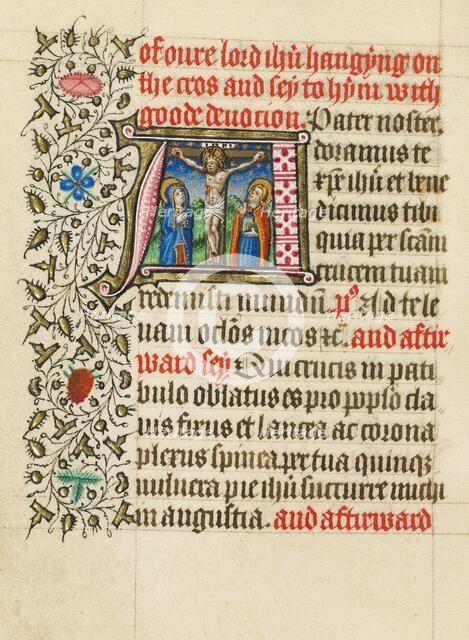 of oure lord ihū hangẏng on
the cros and seẏ to hẏm with
goode deuotion. Pater noster.
Adoramus te
xp̄e ihū et bene
dicimus tibi
quia per scām
crucem tuam
redemisti mundū. ps Ad te le
uaui oclōs meos ꝛc̄. and aftir
ward seẏ Qui crucis in pati
bulo oblatus es pro pp̄lo cla
uis fixus et lancea ac corona
plexus spinea per tua quinqꝫ
uulnera pie ihū succurre michi
in angustia. and aftirward